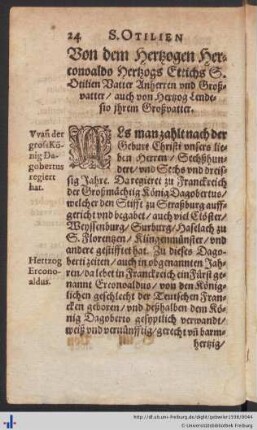 24 S. OTILIEN
Von dem Hertzogen Her-
conoaldo Hertzogs Etichs S.
Otilien Vatter Anherren vnd Groß-
vatter / auch von Hertzog Lende-
sio jhrem Großvatter.
Vvañ der
groß Kö-
nig Da-
gobertus
regiert
hat.
ALs man zahlt nach der
Geburt Christi vnsers lie-
ben Herren / Sechßhun-
dert / vnd Sechs vnd dreis-
sig Jahre. Da regieret zu Franckreich
der Großmächtig König Dagobertus /
welcher den Stifft zu Straßburg auff-
gericht vnd begabet / auch viel Clöster /
Weyssenburg / Surburg / Haselach zu
S. Florentzen / Klingenmünster / vnd
andere gestifftet hat. Zu dieses Dago-
berti zeiten / auch in obgenannten Jah-
ren / da lebet in Franckreich ein Fürst ge-
nannt Erconoaldus / von den König-
lichen geschlecht der Teutschen Fran-
cken geboren / vnd deßhalben dem Kö-
nig Dagoberto gesyptlich verwandt /
weiß vnd vernünfftig / gerecht vñ barm-
hertzig /
Hertzog
Ercono-
aldus.
http://dl.ub.uni-freiburg.de/diglit/gebwiler1598/0044
© Universitätsbibliothek Freiburg